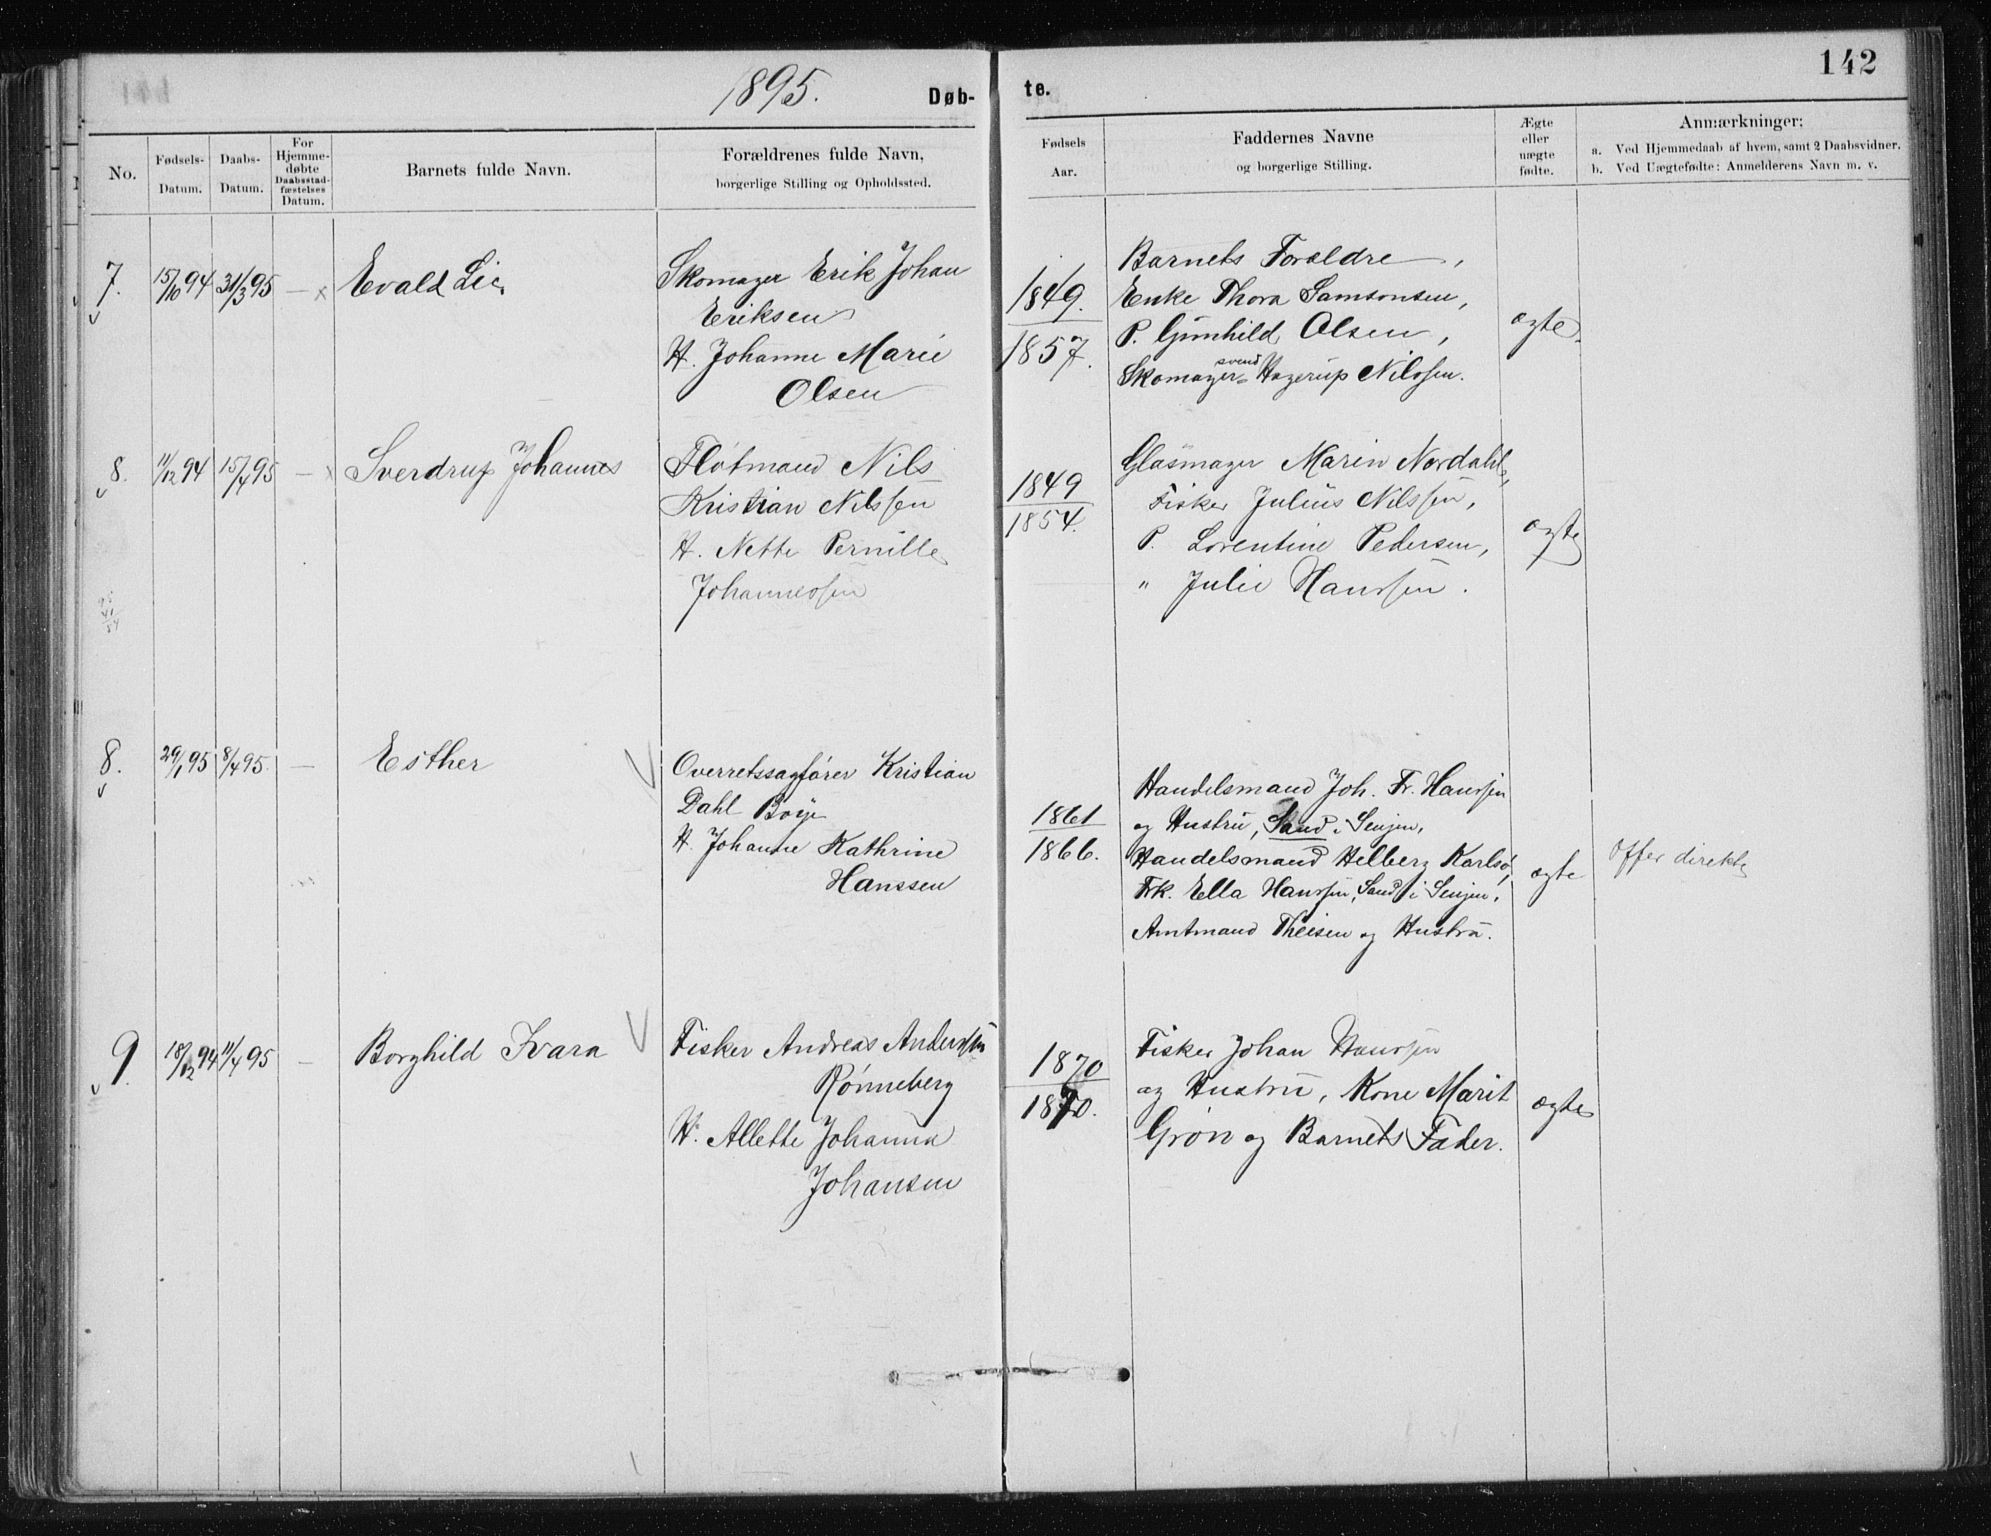 142
1895.
Døb-
te.
No.
Fødsels-
Datum.
Daabs-
Datum.
For
Hjemme-
døbte
Daabsstad-
fæstelses
Datum.
Barnets fulde Navn.
Forældrenes fulde Navn,
borgerlige Stilling og Opholdssted.
Fødsels
Aar.
Faddernes Navne
og borgerlige Stilling.
Ægte
eller
uægte
fødte.
Anmærkninger:
a. Ved Hjemmedaab af hvem, samt 2 Daabsvidner.
b. Ved Uægtefødte: Anmelderens Navn m. v.
7.
15/10 94
31/3 95
—
Evald Lie
Skomager Erik Johan
Eriksen
H. Johanne Marie
Olsen
1849.
1857.
Barnets Forældre,
Enke Thora Samsonsen,
P. Gunhild Olsen,
Skomagersvend Hagerup Nilssen.
ægte.
8.
11/12 94
15/4 95
—
Sverdrup Johannes
Flótmand Nils
Kristian Nilssen
H. Nette Pernille
Johannessen
1849
1854.
Glasmager Marin Nordahl,
Fisker Julius Nilssen,
P. Lorentine Pedersen,
" Julie Hanssen.
ægte
8.
29/1 95
8/4 95.
—
Esther
Overretssagfører Kristian
Dahl Boye
H. Johanne Kathrine
Hanssen
1861
1866.
Handelsmand Joh. Fr. Hanssen
og Hustru, Sand i Senjen,
Handelsmand Helberg Karlsø,
Frk. Ella Hanssen, Sand i Senjen,
Amtmand Theisen og Hustru.
ægte
Offer direkte
9.
18/12 94
11/4 95
—
Borghild Ivara
Fisker Andreas Anderssen
Rønneberg
H. Allette Johanna
Johansen
1870
1870.
Fisker Johan Hanssen
og Hustru, Kone Marit
Grøn og Barnets Fader.
ægte